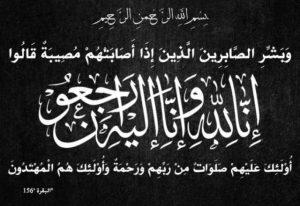 بسم الله الرحمن الرحيم
وَبَشِّرِ الصَّابِرِينَ الَّذِينَ إِذَا أَصَابَتْهُمْ مُصِيبَةٌ قَالُوا
إِنَّا لِلَّهِ وَإِنَّا إِلَيْهِ رَاجِعُونَ
أُوْلَئِكَ عَلَيْهِمْ صَلَوَاتٌ مِنْ رَبِّهِمْ وَرَحْمَةٌ وَأُوْلَئِكَ هُمُ الْمُهْتَدُونَ
البقرة 156"